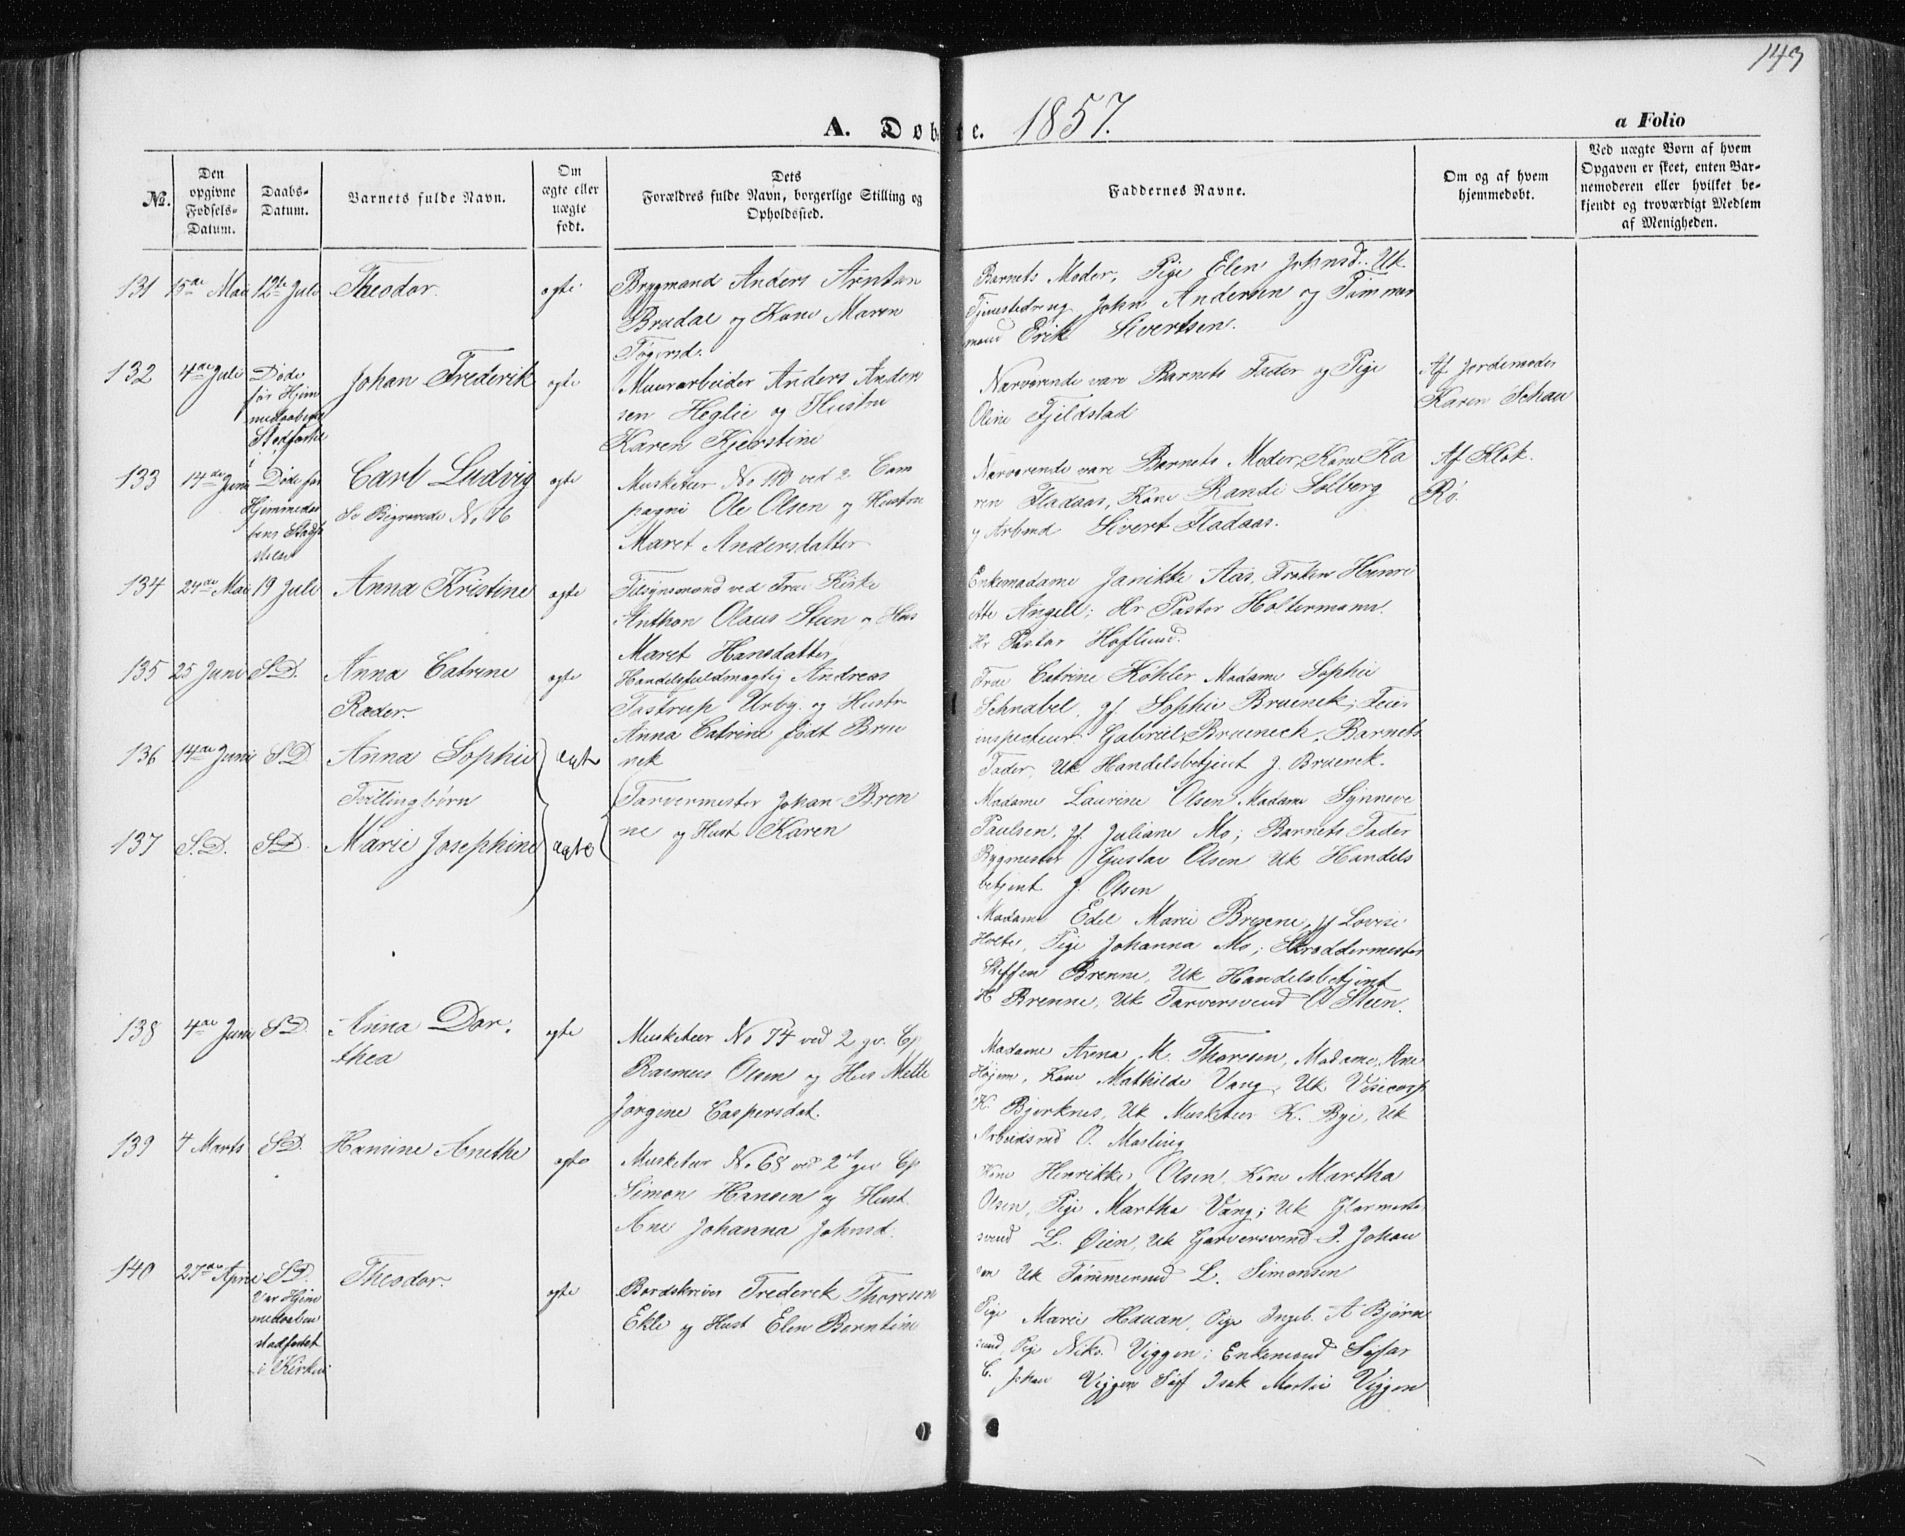 149
A. Døbte. 1857.
a Folio
No.
Den opgivne Fødsels-Datum.
Daabs-Datum.
Barnets fulde Navn.
Om ægte eller uægte født.
Dets Forældres fulde Navn, borgerlige Stilling og Opholdssted.
Faddernes Navne.
Om og af hvem hjemmedøbt.
Ved uægte Børn af hvem Opgaven er skeet, enten Barnemoderen eller hvilket bekjendt og troværdigt Medlem af Menigheden.
131 15de Mai 12te Juli Theodor. ægte
Brygmand Anders Arntsen
Bradal og Kone Maren
Tøgersd.
Barnets Moder, Pige Elen Johnsd. Uk
Tjenestedreng John Andersen og Tømmer
mand Erik Sivertsen.
132 4de Juli Døde før Hjemmedaabens Stadfæstelse Johan Frederik ægte
Muurarbeider Anders Ander
sen Heglie og Hustru
Karen Kjerstine
Nærværende vare Barnets Fader og Pige
Oline Fjeldstad
Af Jordemoder
Karen Schau
133 14de Juni Døde før Hjemmedaabens Stadfæstelse Carl Ludvig ægte
Se Begravede No 16
Musketeer No 110 ved 2 Com
pagni Ole Olsen og Hustru
Maret Andersdatter
Nærværende vare Barnets Moder, Kone Ka
ren Fladaas, Kone Randi Solberg
og Arbmd Sivert Fladaas.
Af Klok.
Rø.
134 24de Mai 19 Juli Anna Kristine ægte
Tilsynsmand ved Frue Kirke
Anthon Olaus Steen og Hus
Maret Hansdatter
Enkemadame Janikke Aas, Frøken Henri
ette Angell; Hr Pastor Holtermann.
Hr Pastor Hoflund.
135 25 Juni S.D. Anna Catrine
Ræder. ægte
Handelsfuldmægtig Andreas
Tostrup Urby. og Hustr
Anna Catrine født Brue
nek
Frue Catrine Köhler Madame Sophie
Schnabel, Jf Sophie Bruenek; Feier
inspecteur Gabriel Brueneck, Barnets
Fader, Uk Handelsbetjent J. Bruenek.
136 14de Juni S.D. Anna Sophie ægte
Tvillingbørn
Farvermester Johan Bren
ne og Hust Karen
Madame Laurine Olsen, Madame Synneve
Paulsen, Jf Juliane Mo; Barnets Fader
Bygmester Gustav Olsen Uk Handels
betjent J. Olsen
137 S.D. S.D. Marie Josephine ægte
Madame Edel Marie Brgene, Jf Lovise
Holte, Pige Johanna Mo; Skræddermester
Steffen Brenne, Uk Handelsbetjent
H Brenne, Uk Farversvend O Steen.
138 4de Juni S.D. Anna Dor.
thea ægte
Musketeer No 74 ved 2 gev. Cp
Rasmus Olsen og Hus Mette
Jørgine Caspersdat.
Madame Anna M. Thoresen, Madame Ane
Højem, Kone Mathilde Vang, Uk Vicecorp
K. Bjerknes, Uk Musketeer K. Bye, Uk
Arbeidsmd O. Mosling
139 4 Marts S.D. Hansine Anethe ægte
Musketeer No 68 ved 2et gev Cp
Simon Hansen og Hust.
Ane Johanna Johnsd.
Kone Henrikke Olsen, Kone Martha
Olsen, Pige Martha Vang; Uk Glarmester
svend L. Øien, Uk Garversvend J. Johan
sen Uk Tømmermd L. Simonsen
140 27de April S.D. Var Hjemmedaaben stadfæstet i Kirken Theodor. ægte
Bordskriver Frederek Thoresen
Ekle og Hust Elen Berntine
Pige Marie Havan, Pige Ingeb. A Bjørn
sund Pige Niko. Viggen; Enkemand Søfar
C. Johan Viggen Søf Isak Martin Viggen